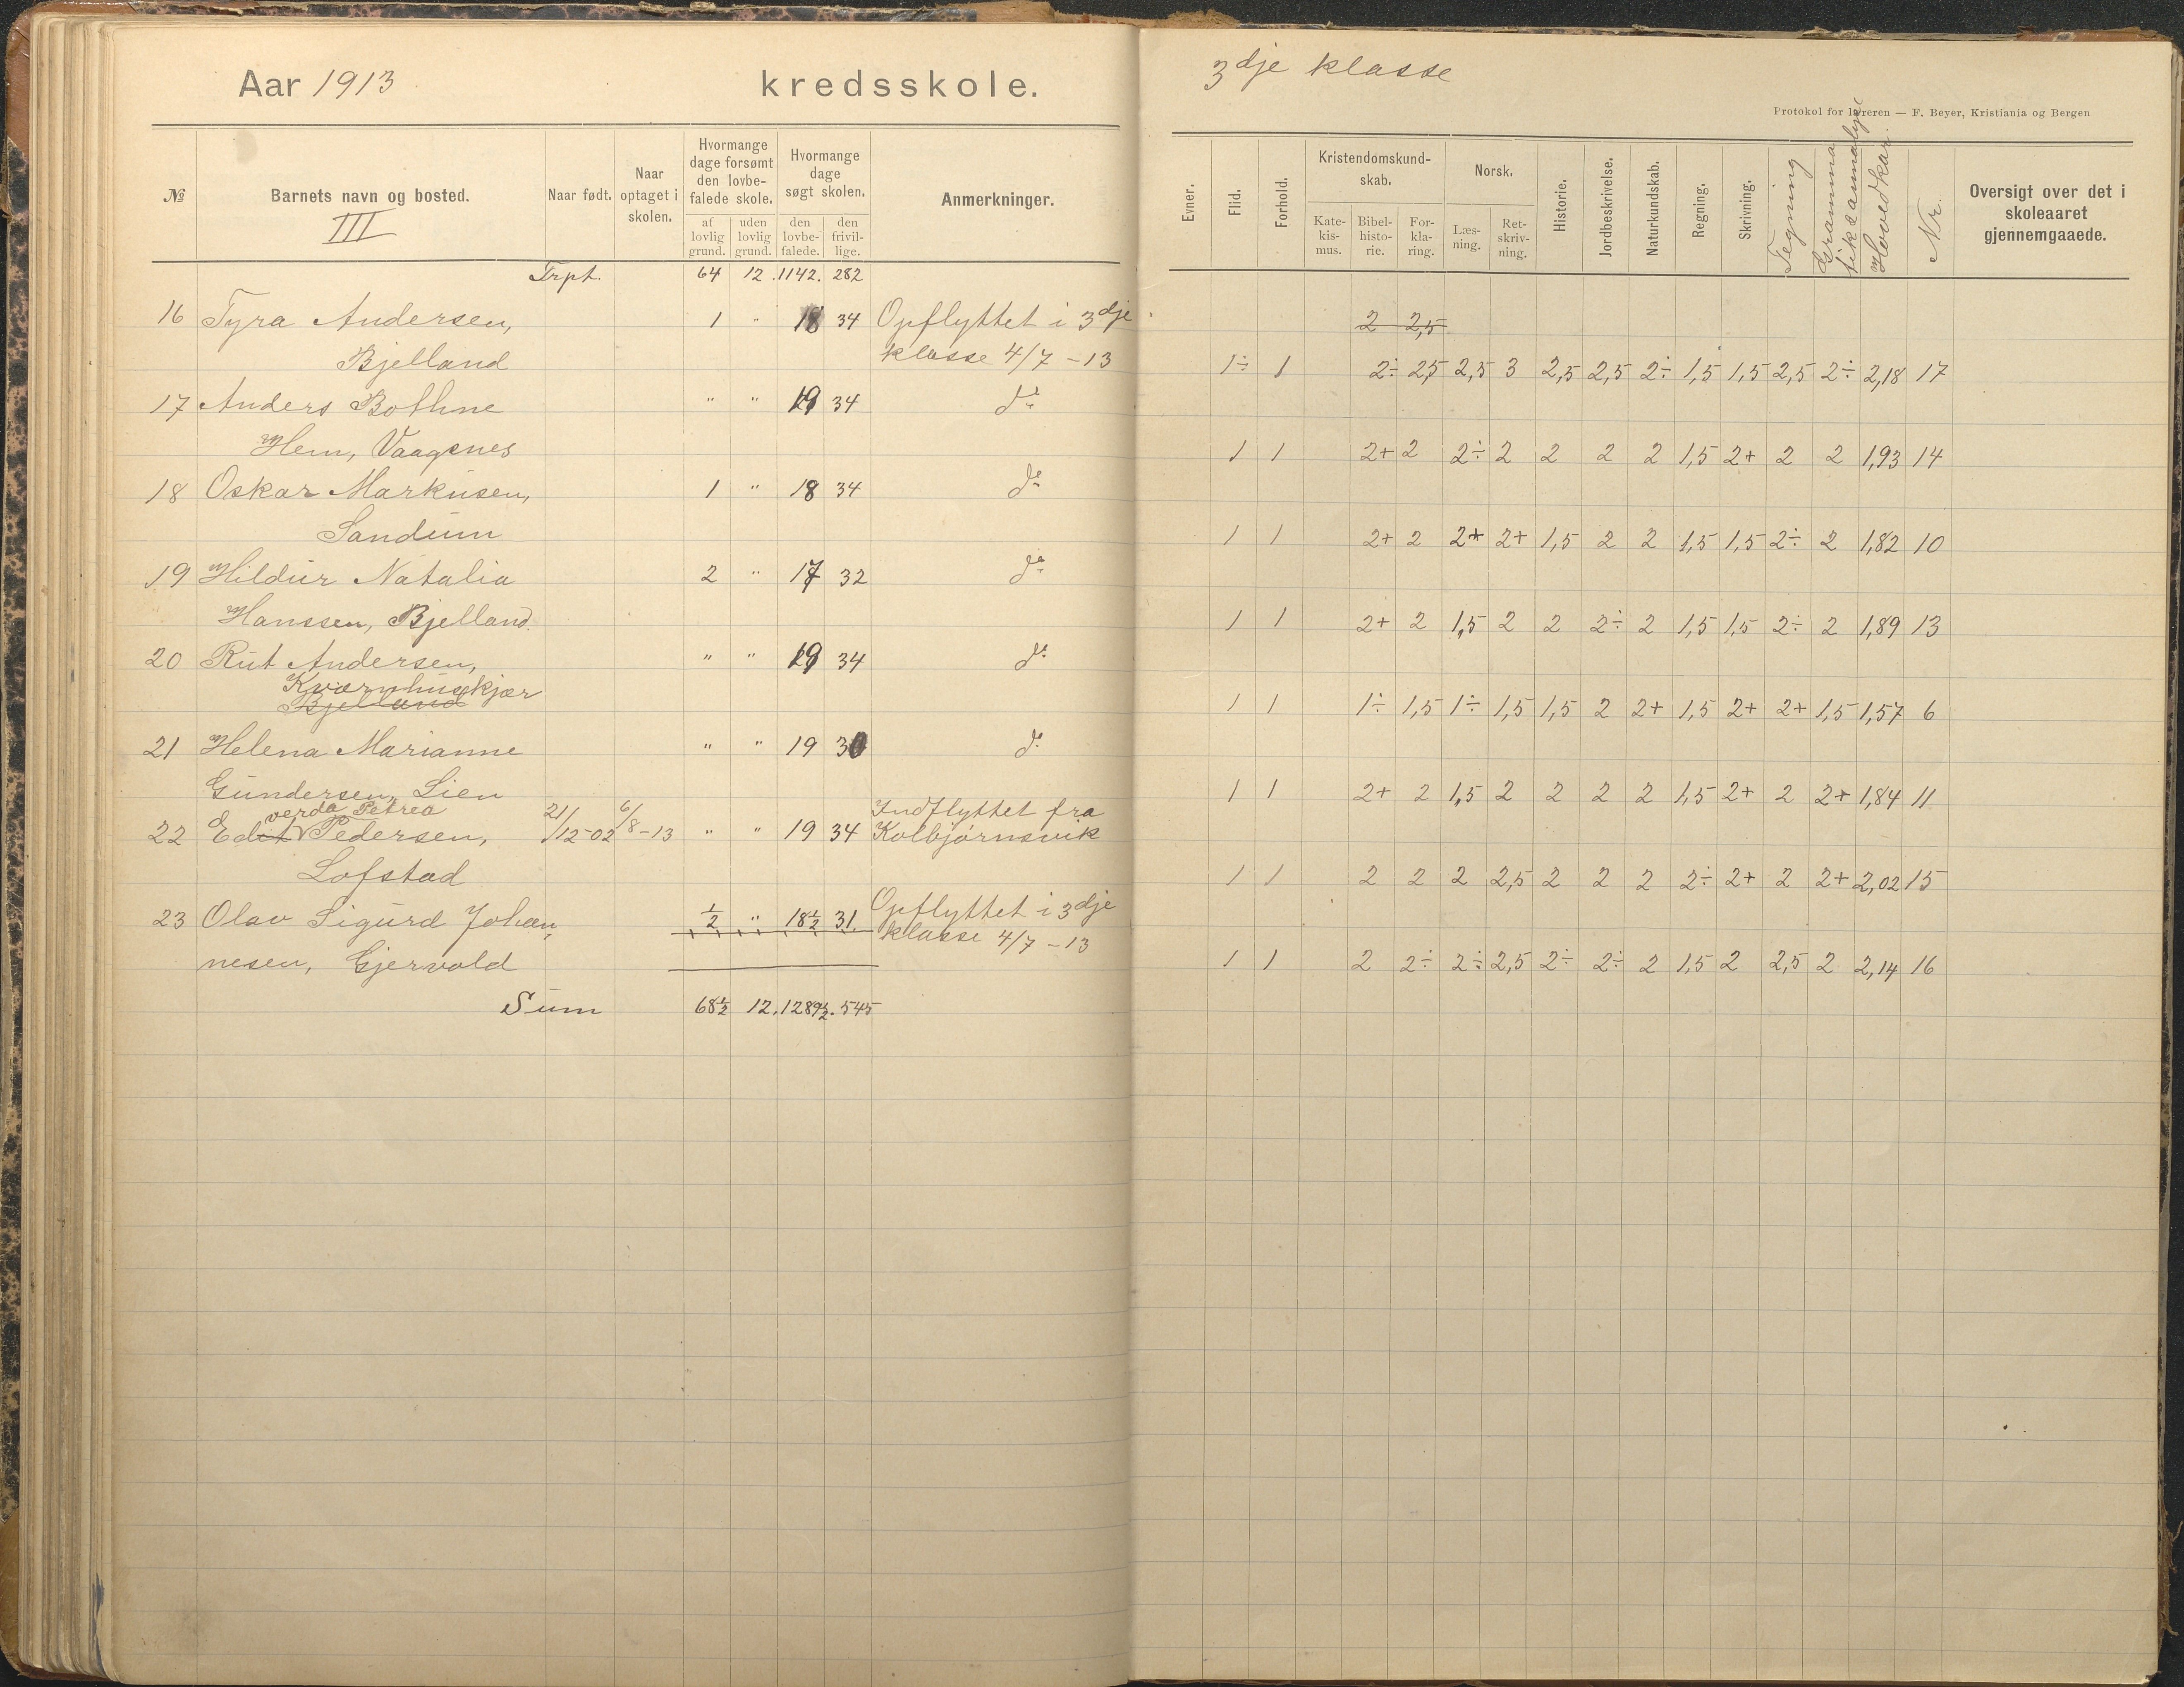 Aar 1913 kredsskole.
№ Barnets navn og bosted. Naar født. Naar optaget i skolen. Hvormange dage forsømt den lovbefalede skole. af lovlig grund. uden lovlig grund. Hvormange dage søgt skolen. den lovbefalede. den frivillige. Anmerkninger.
III
Trpt. 64 12. 1142. 282
16 Tyra Andersen, 1 " 18 34 Opflyttet i 3dje
Bjelland klasse 4/7 - 13
17 Anders Bothne " " 19 34 do
Hem, Vaagsnes
18 Oskar Markusen, 1 " 18 34 do
Sandum
19 Hildur Natalia 2 " 17 32 do
Hanssen, Bjelland.
20 Rut Andersen, " " 19 34 do
Kvernhuskjær
Bjelland
21 Helena Marianne " " 19 30 do
Gundersen, Lien
verda Petrea Indflyttet fra
22 Edit Pedersen, 21/12-02 6/8-13 " " 19 34 Kolbjørnsvik
Lofstad
23 Olav Sigurd Johan- 1/2 " 18 1/2 31. Opflyttet i 3dje
nesen, Gjervold klasse 4/7 - 13
Sum 68 1/2 12. 1289 1/2. 545
3dje klasse
Protokol for læreren — F. Beyer, Kristiania og Bergen
Evner. Flid. Forhold. Kristendomskundskab. Katekismus. Bibelhistorie. Forklaring. Norsk. Læsning. Retskrivning. Historie. Jordbeskrivelse. Naturkundskab. Regning. Skrivning. Tegning Grammatikaannalyse Hovedkar. Nr. Oversigt over det i skoleaaret gjennemgaaede.
2 2,5
1÷ 1 2÷ 2,5 2,5 3 2,5 2,5 2÷ 1,5 1,5 2,5 2÷ 2,18 17
1 1 2+ 2 2÷ 2 2 2 2 1,5 2+ 2 2 1,93 14
1 1 2+ 2 2+ 2+ 1,5 2 2 1,5 1,5 2÷ 2 1,82 10
1 1 2+ 2 1,5 2 2 2÷ 2 1,5 1,5 2÷ 2 1,89 13
1 1 1÷ 1,5 1÷ 1,5 1,5 2 2+ 1,5 2+ 2+ 1,5 1,57 6
1 1 2+ 2 1,5 2 2 2 2 1,5 2+ 2 2+ 1,84 11
1 1 2 2 2 2,5 2 2 2 2÷ 2+ 2 2+ 2,02 15
1 1 2 2÷ 2÷ 2,5 2÷ 2÷ 2 1,5 2 2,5 2 2,14 16